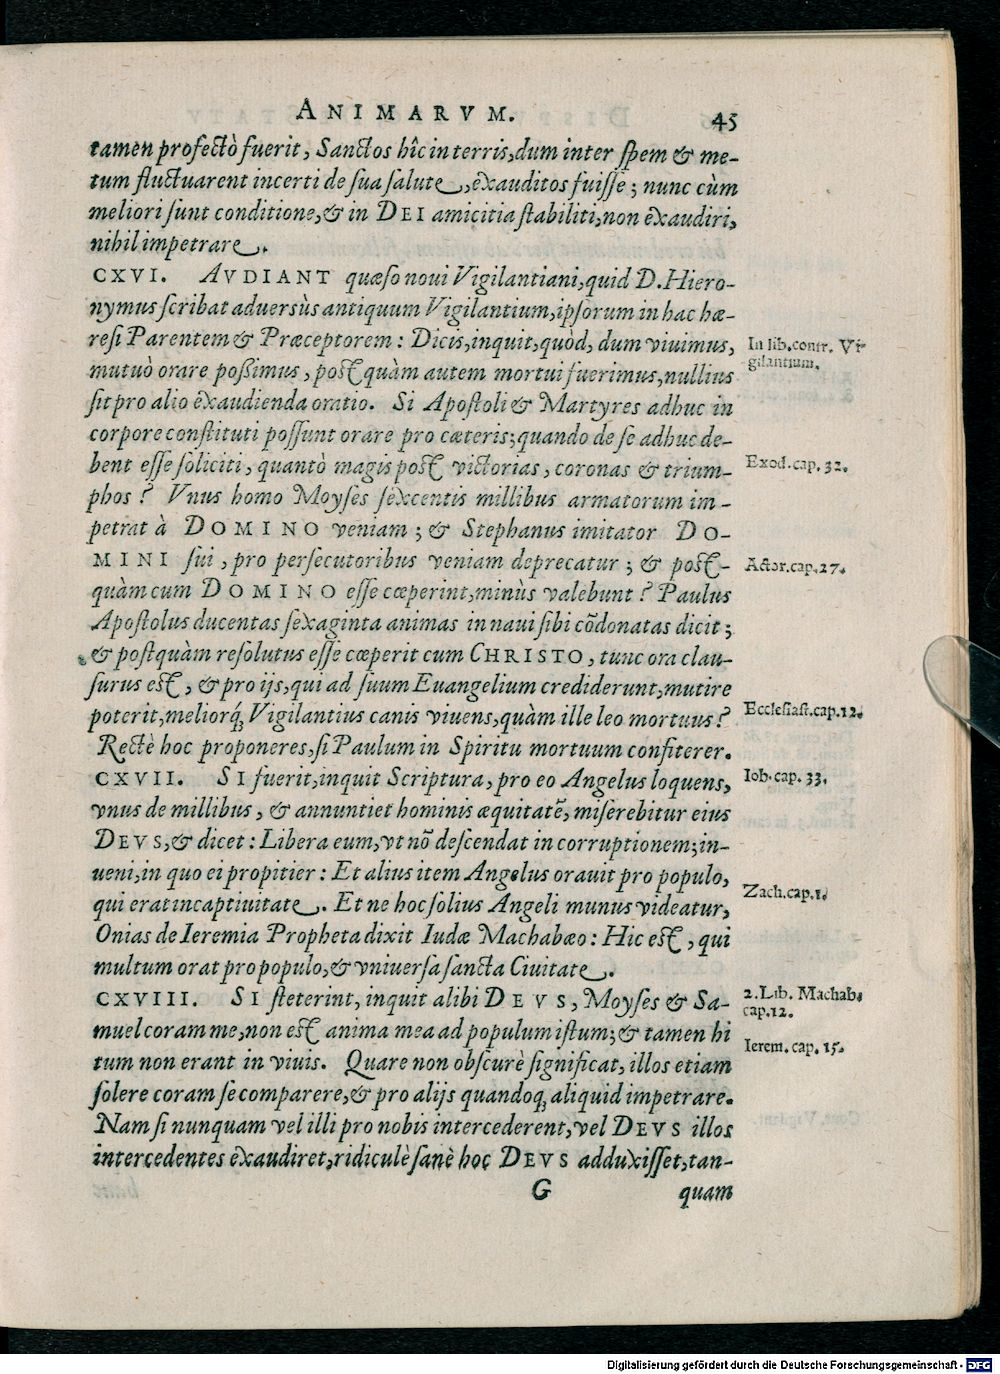 ANIMARVM. 45
tamen profectò fuerit, Sanctos hîc in terris, dum inter spem & me-
tum fluctuarent incerti de sua salute, exauditos fuisse; nunc cùm
meliori sunt conditione, & in DEI amicitia stabiliti, non exaudiri,
nihil impetrare.
CXVI. AVDIANT quæso noui Vigilantiani, quid D. Hiero-
nymus scribat aduersùs antiquum Vigilantium, ipsorum in hac hæ-
resi Parentem & Præceptorem: Dicis, inquit, quòd, dum viuimus,
In lib. contr. Vi-
gilantium.
mutuò orare possimus, postquàm autem mortui fuerimus, nullius
sit pro alio exaudienda oratio. Si Apostoli & Martyres adhuc in
corpore constituti possunt orare pro cæteris; quando de se adhuc de-
bent esse soliciti, quantò magis post victorias, coronas & trium-
Exod. cap. 32.
phos? Vnus homo Moyses sexcentis millibus armatorum im-
petrat à DOMINO veniam; & Stephanus imitator DO-
MINI sui, pro persecutoribus veniam deprecatur; & post-
Actor. cap. 27.
quàm cum DOMINO esse cœperint, minùs valebunt? Paulus
Apostolus ducentas sexaginta animas in naui sibi cōdonatas dicit;
& postquàm resolutus esse cœperit cum CHRISTO, tunc ora clau-
surus est, & pro ijs, qui ad suum Euangelium crediderunt, mutire
poterit, meliorq́; Vigilantius canis viuens, quàm ille leo mortuus?
Ecclesiast. cap. 12.
Rectè hoc proponeres, si Paulum in Spiritu mortuum confiterer.
CXVII. SI fuerit, inquit Scriptura, pro eo Angelus loquens,
Iob. cap. 33.
vnus de millibus, & annuntiet hominis æquitatē, miserebitur eius
DEVS, & dicet: Libera eum, vt nō descendat in corruptionem; in-
ueni, in quo ei propitier: Et alius item Angelus orauit pro populo,
qui erat in captiuitate. Et ne hoc solius Angeli munus videatur,
Zach. cap. 1.
Onias de Ieremia Propheta dixit Iudæ Machabæo: Hic est, qui
multum orat pro populo, & vniuersa sancta Ciuitate.
CXVIII. SI steterint, inquit alibi DEVS, Moyses & Sa-
2. Lib. Machab.
cap. 12.
muel coram me, non est anima mea ad populum istum; & tamen hi
tum non erant in viuis. Quare non obscurè significat, illos etiam
Ierem. cap. 15.
solere coram se comparere, & pro alijs quandoq; aliquid impetrare.
Nam si nunquam vel illi pro nobis intercederent, vel DEVS illos
intercedentes exaudiret, ridiculè sanè hoc DEVS adduxisset, tan-
G quam
Digitalisierung gefördert durch die Deutsche Forschungsgemeinschaft - DFG